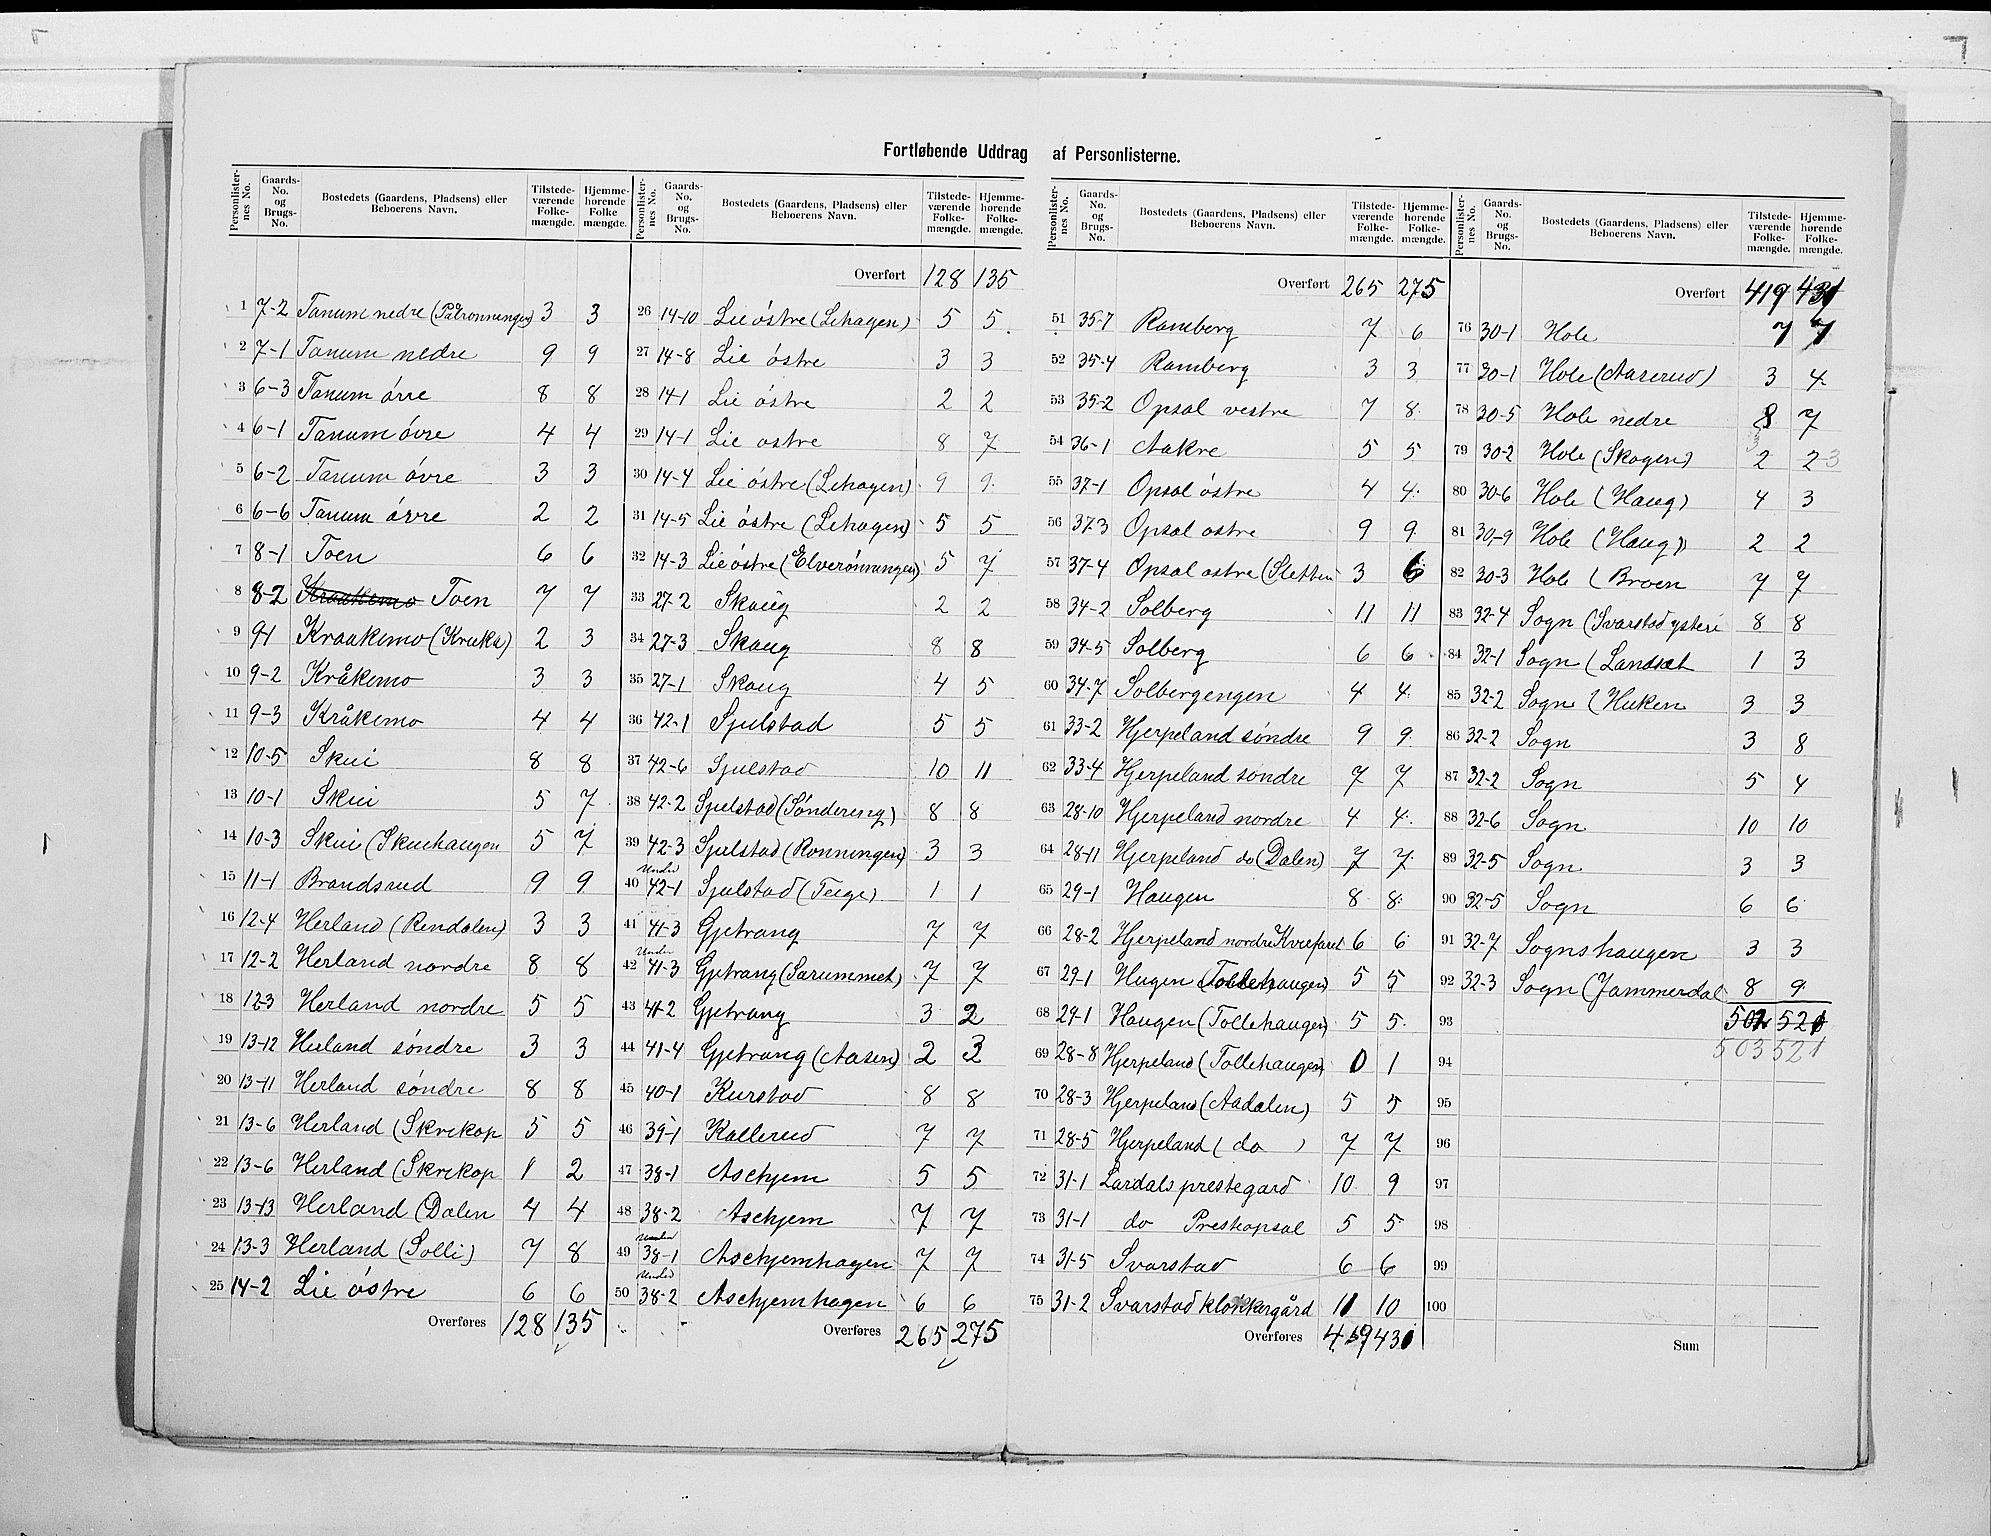 Fortløbende Uddrag af Personlisterne.
Personlister-nes No. Gaards-No. og Brugs-No. Bostedets (Gaardens, Pladsens) eller Beboerens Navn. Tilstede-værende Folke-mængde. Hjemme-hørende Folke mængde.
1 7-2 Tanum nedre (Pålrønningen) 3 3
2 7-1 Tanum nedre 9 9
3 6-3 Tanum óvre 8 8
4 6-1 Tanum óvre 4 4
5 6-2 Tanum óvre 3 3
6 6-6 Tanum óvre 2 2
7 8-1 Toen 6 6
8 8-2 Kraakemo Toen 7 7
9 9-1 Kraakemo (Kruka) 2 3
10 9-2 Kråkemo 3 3
11 9-3 Kråkemo 4 4
12 10-5 Skui 8 8
13 10-1 Skui 5 7
14 10-3 Skui (Skuehaugen 5 7
15 11-1 Brandsrud 9 9
16 12-4 Herland (Rendalen) 3 3
17 12-2 Herland nordre 8 8
18 12-3 Herland nordre 5 5
19 13-12 Herland søndre 3 3
20 13-11 Herland søndre 8 8
21 13-6 Herland (Skrikop 5 5
22 13-6 Herland (Skrikop 1 2
23 13-13 Herland (Dalen 4 4
24 13-3 Herland (Solli) 7 8
25 14-2 Lie óstre 6 6
Overføres 128 135
Personlister-nes No. Gaards-No. og Brugs-No. Bostedets (Gaardens, Pladsens) eller Beboerens Navn. Tilstede-værende Folke-mængde. Hjemme-hørende Folke-mængde.
Overført 128 135
26 14-10 Lie óstre (Lihagen) 5 5
27 14-8 Lie óstre 3 3
28 14-1 Lie óstre 2 2
29 14-1 Lie ostre 8 7
30 14-4 Lie óstre (Lihagen) 9 9
31 14-5 Lie óstre (Lihagen) 5 5
32 14-3 Lie óstre (Elverónningen) 5 7
33 27-2 Skaug 2 2
34 27-3 Skaug 8 8
35 27-1 Skaug 4 5
36 42-1 Sjulstad 5 5
37 42-6 Sjulstad 10 11
38 42-2 Sjulstad (Søndereng) 8 8
39 42-3 Sjulstad (Ronningen) 3 3
40 Under 42-1 Sjulstad (Teige) 1 1
41 41-3 Gjetrang 7 7
42 Under 41-3 Gjetrang (Sarummet) 7 7
43 41-2 Gjetrang 3 2
44 41-4 Gjetrang (Aasen) 2 3
45 40-1 Kurstad 8 8
46 39-1 Kallerud 7 7
47 38-1 Askjem 5 5
48 38-2 Askjem 7 7
49 Under 38-1 Askjemhagen 7 7
50 Under 38-2 Askjemhagen 6 6
Overføres 265 275
Personlister-nes No. Gaards-No. og Brugs-No. Bostedets (Gaardens, Pladsens) eller Beboerens Navn. Tilstede-værende Folke-mængde. Hjemme-hørende Folke-mængde.
Overført 265 275
51 35-7 Ramberg 7 6
52 35-4 Ramberg 3 3
53 35-2 Opsal vestre 7 8
54 36-1 Aakre 5 5
55 37-1 Opsal óstre 4 4
56 37-3 Opsal ostre 9 9
57 37-4 Opsal ostre (Sletten 3 6
58 34-2 Solberg 11 11
59 34-5 Solberg 6 6
60 34-7 Solbergengen 4 4
61 33-2 Hjerpeland søndre 9 9
62 33-4 Hjerpeland søndre 7 7
63 28-10 Hjerpeland nordre 4 4
64 28-11 Hjerpeland do (Dalen) 7 7
65 29-1 Haugen 8 8
66 28-2 Hjerpeland nordre Kvefaret 6 6
67 29-1 Hugen (Tollehaugen) 5 5
68 29-1 Haugen (Tollehaugen) 5 5
69 28-8 Hjerpeland (Tollehaugen) 0 1
70 28-3 Hjerpeland (Aadalen) 5 5
71 28-5 Hjerpeland ( do ) 7 7
72 31-1 Lardals prestegard 10 9
73 31-1 do Prestopsal 5 5
74 31-5 Svarstad 6 6
75 31-2 Svarstad klokkergård 11 10
Overføres 419 431
Personlister-nes No. Gaards-No. og Brugs-No. Bostedets (Gaardens, Pladsens) eller Beboerens Navn. Tilstede-værende Folke-mængde. Hjemme-hørende Folke-mængde.
Overført 419 431
76 30-1 Hole 7 7
77 30-1 Hole (Aaserud) 3 4
78 30-5 Hole nedre 8 7
79 30-2 Hole (Skogen) 2 2 3
80 30-6 Hole (Haug) 4 3
81 30-9 Hole (Haug) 2 2
82 30-3 Hole (Broen 7 7
83 32-4 Sogn (Svarstad ysteri 8 8
84 32-1 Sogn (Landsat 1 3
85 32-2 Sogn (Huken 3 3
86 32-2 Sogn 3 8
87 32-2 Sogn 5 4
88 32-6 Sogn 10 10
89 32-5 Sogn 3 3
90 32-5 Sogn 6 6
91 32-7 Sognshaugen 3 3
92 32-3 Sogn (Jammerdal 8 9
93 502 520
503 521
94
95
96
97
98
99
100
Sum